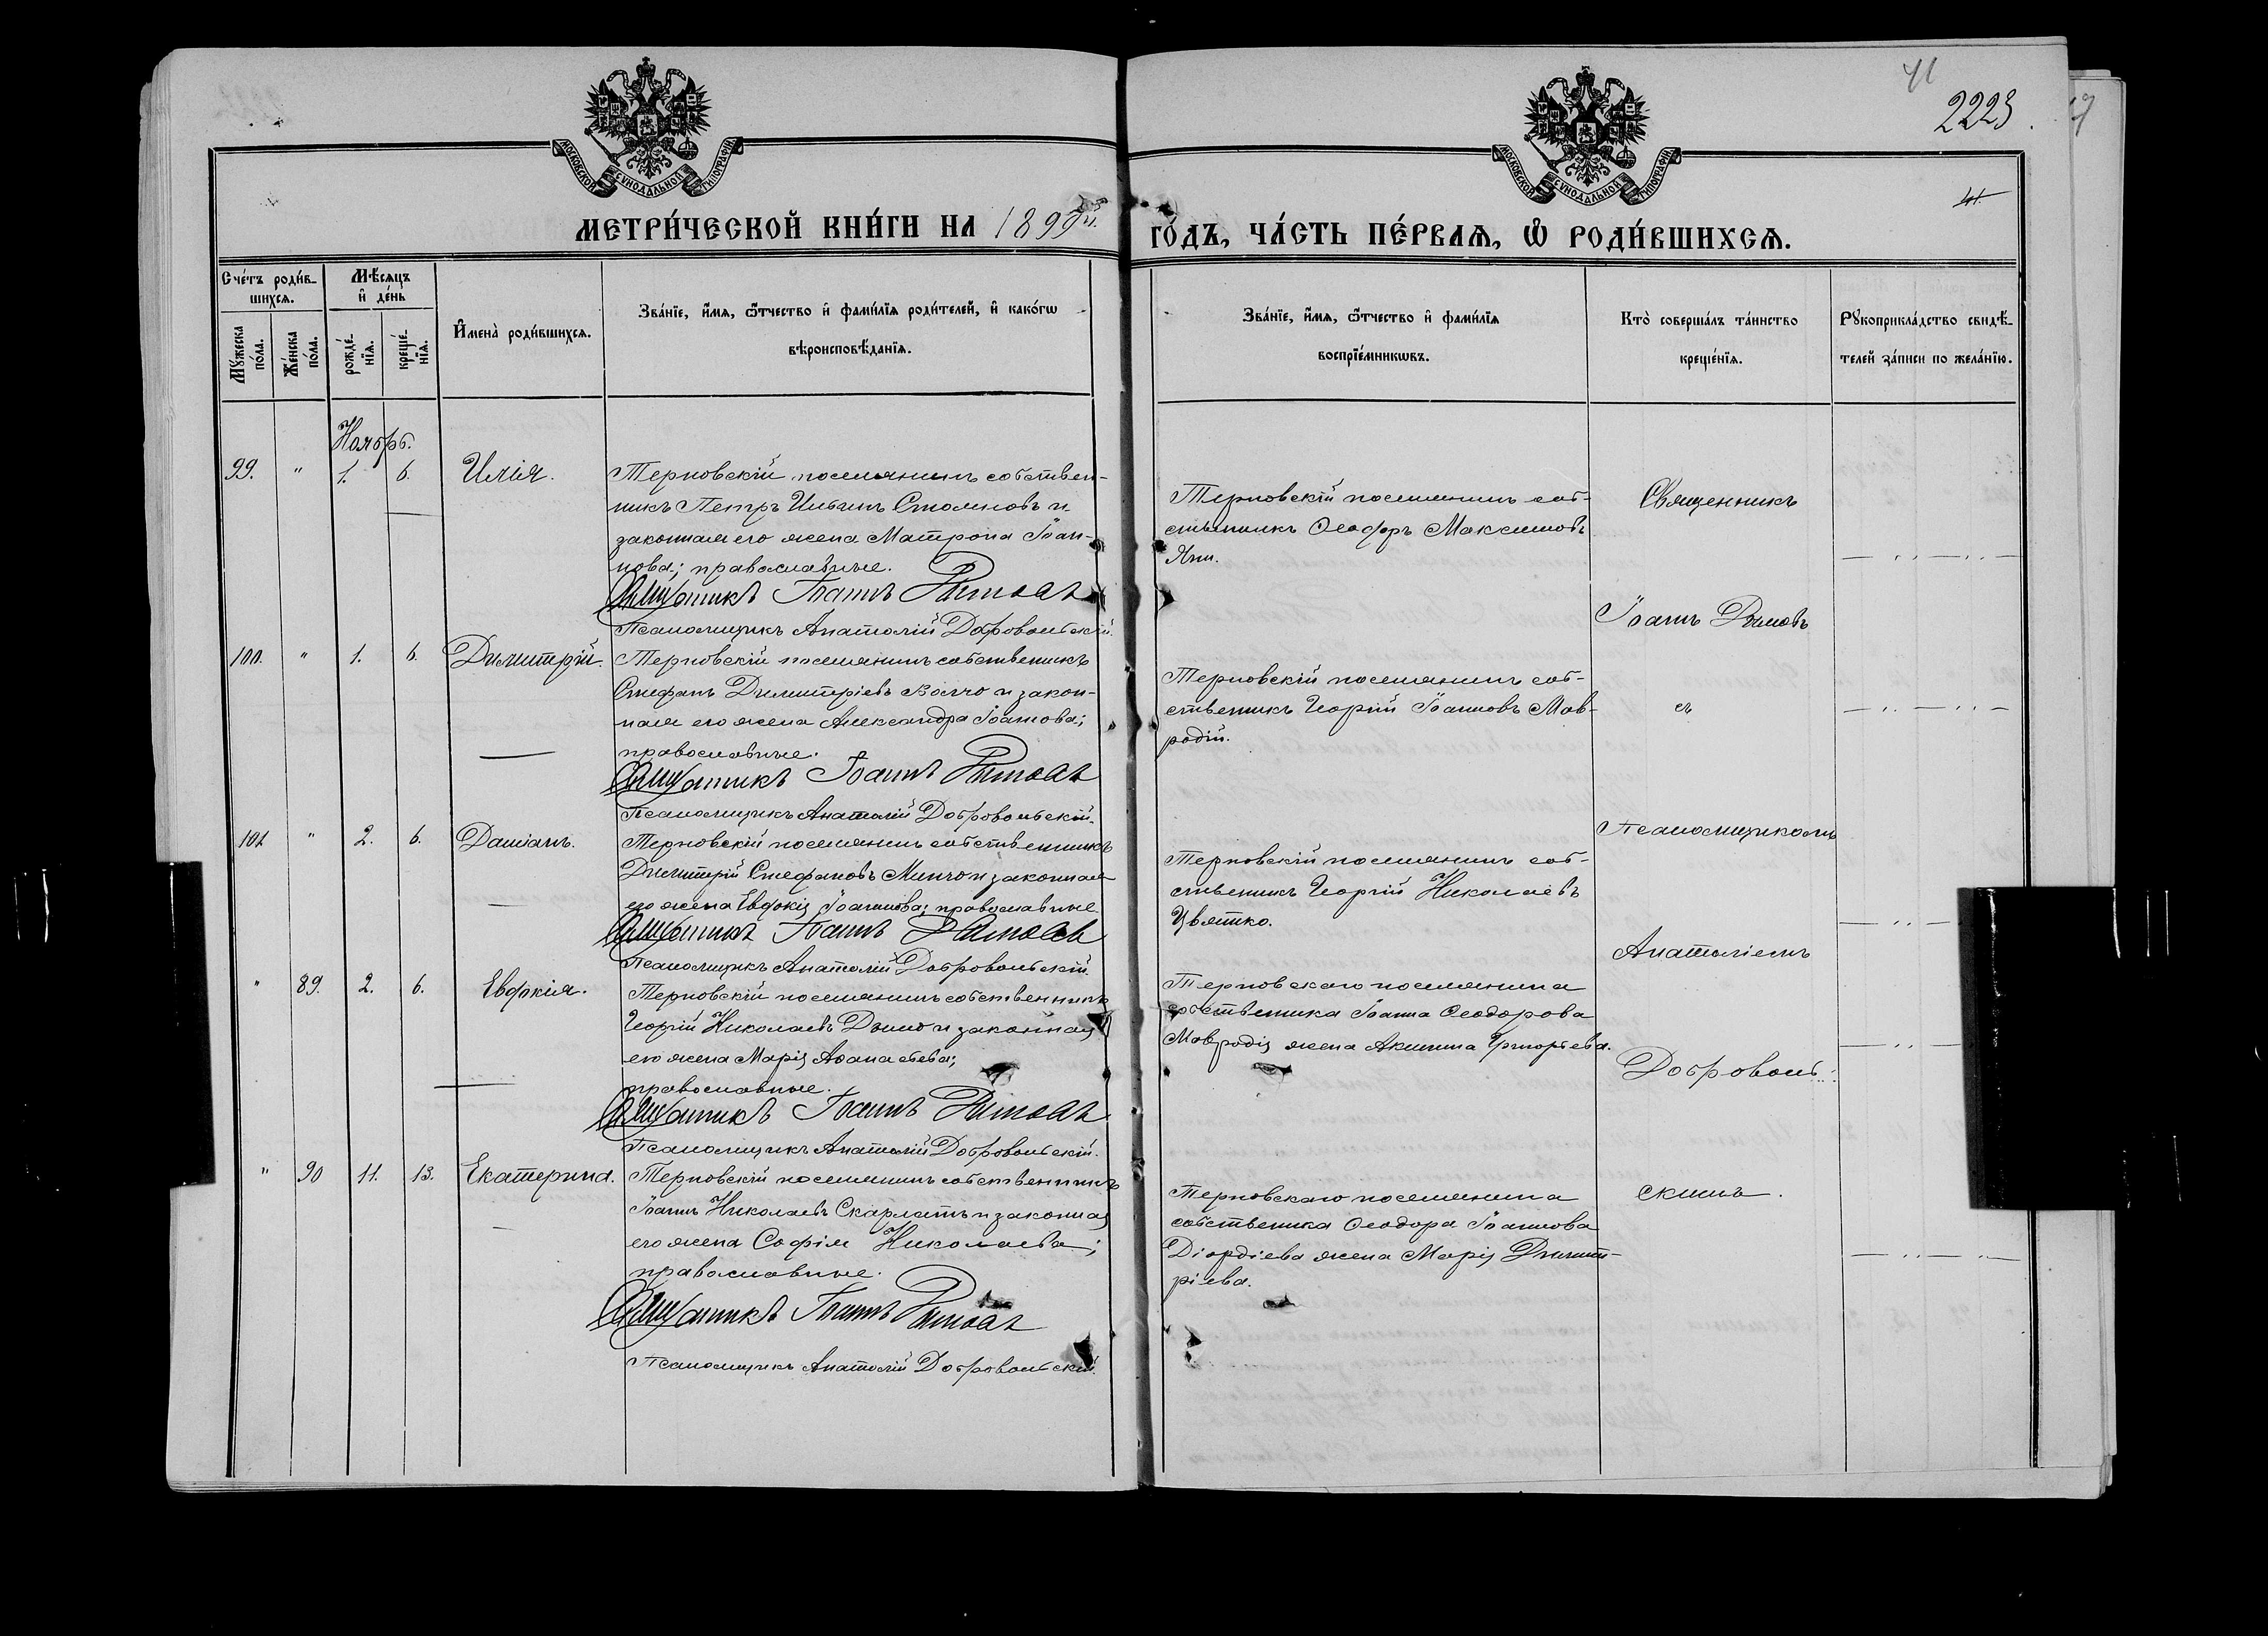 41
2223.
19
МОСКОВСКОЙ СѴНОДАЛЬНОЙ ТИПОГРАФІИ
МОСКОВСКОЙ СѴНОДАЛЬНОЙ ТИПОГРАФІИ
МЕТРИ́ЧЕСКОЙ КНИ́ГИ НА 1899й.
ГО́ДЪ, ЧА́СТЬ ПЕ́РВАѦ, Ѡ҆ РОДИ́ВШИХСѦ.
Сче́тъ роди́в-
шихсѧ.
Мѣ́сяцъ
и҆ де́нь
Мꙋ́жеска
по́ла.
Же́нска
по́ла.
рожде́-
нїѧ.
креще́-
нїѧ.
И҆мена̀ роди́вшихсѧ.
Зва́нїе, и҆́мѧ, ѻ҆́тчество и҆ фами́лїѧ роди́телей, и҆ како́гѡ
вѣроисповѣ́данїѧ.
Зва́нїе, и҆́мѧ, ѻ҆́тчество и҆ фами́лїѧ
воспрїе́мникѡвъ.
Кто̀ соверша́лъ та́инство
креще́нїѧ.
Рꙋкоприкла́дство свидѣ́-
телей за́писи по жела́нїю.
Ноябрь.
99. " 1. 6. Илія.
Терновскій поселянинъ собствен-
никъ Петръ Ильинъ Стояновъ и
законная его жена Матрона Іоан-
нова; православные.
Священникъ Іоаннъ Дымовъ
Псаломщикъ Анатолій Добровольскій.
Терновскій поселянинъ соб-
ственникъ Ѳеодоръ Максимовъ
Яни.
Священникъ
Іоаннъ Дымовъ
100. " 1. 6. Димитрій.
Терновскій поселянинъ собственникъ
Стефанъ Димитріевъ Волчо и закон-
ная его жена Александра Іоаннова;
православные.
Священникъ Іоаннъ Дымовъ
Псаломщикъ Анатолій Добровольскій.
Терновскій поселянинъ соб-
ственникъ Георгій Іоанновъ Мав-
родій.
съ
101 " 2. 6. Даміанъ.
Терновскій поселянинъ собственникъ
Димитрій Стефановъ Минчо и законная
его жена Евдокія Іоаннова; православные.
Священникъ Іоаннъ Дымовъ
Псаломщикъ Анатолій Добровольскій.
Терновскій поселянинъ соб-
ственникъ Георгій Николаевъ
Цвятко.
Псаломщикомъ
Анатоліемъ
" 89. 2. 6. Евдокія.
Терновскій поселянинъ собственникъ
Георгій Николаевъ Дымо и законная
его жена Марія Аѳанасьева;
православные.
Священникъ Іоаннъ Дымовъ
Псаломщикъ Анатолій Добровольскій.
Терновскаго поселянина
собственника Іоанна Ѳеодорова
Мавродія жена Акилина Григорьева.
Доброволь-
" 90 11. 13. Екатерина.
Терновскій поселянинъ собственникъ
Іоаннъ Николаевъ Скарлатъ и законная
его жена Софія Николаева;
православные.
Священникъ Іоаннъ Дымовъ
Псаломщикъ Анатолій Добровольскій.
Терновскаго поселянина
собственника Ѳеодора Іоаннова
Діордіева жена Марія Димит-
ріева.
скимъ.